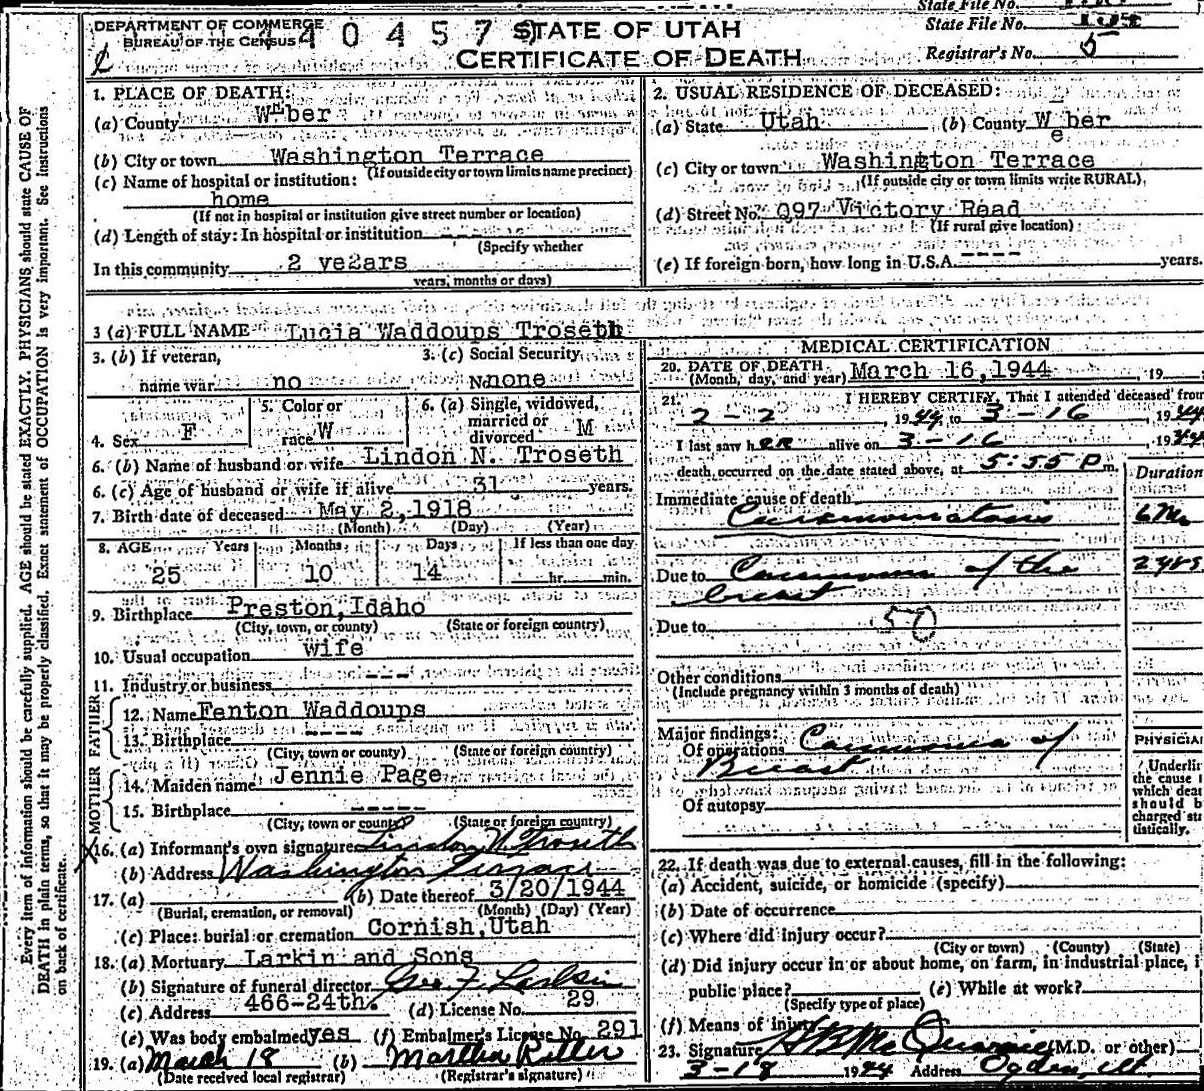 State File No.
DEPARTMENT OF COMMERCE
BUREAU OF THE CENSUS
4 4 0 4 5 7
STATE OF UTAH
CERTIFICATE OF DEATH
State File No.
Registrar's No. 5
Every item of information should be carefully supplied. AGE should be stated EXACTLY. PHYSICIANS should state CAUSE OF
DEATH in plain terms, so that it may be properly classified. Exact statement of OCCUPATION is very important. See instructions
on back of certificate.
1. PLACE OF DEATH:
(a) County Weber
(b) City or town Washington Terrace
(If outside city or town limits name precinct)
(c) Name of hospital or institution:
home
(If not in hospital or institution give street number or location)
(d) Length of stay: In hospital or institution ----
(Specify whether
In this community 2 ye2ars
years, months or days)
2. USUAL RESIDENCE OF DECEASED:
(a) State Utah (b) County Weber
(c) City or town Washington Terrace
(If outside city or town limits write RURAL)
(d) Street No. Q97 Victory Road
(If rural give location)
(e) If foreign born, how long in U.S.A. ---- years.
3 (a) FULL NAME Lucia Waddoups Troseth
3. (b) If veteran,
name war no
3. (c) Social Security
No none
4. Sex F
5. Color or
race W
6. (a) Single, widowed,
married or
divorced M
6. (b) Name of husband or wife Lindon N. Troseth
6. (c) Age of husband or wife if alive 31 years.
7. Birth date of deceased May 2, 1918
(Month) (Day) (Year)
8. AGE Years Months Days If less than one day
25 10 14 hr. min.
9. Birthplace Preston, Idaho
(City, town, or county) (State or foreign country)
10. Usual occupation wife
11. Industry or business ---
FATHER
12. Name Fenton Waddoups
13. Birthplace ----
(City, town or county) (State or foreign country)
MOTHER
14. Maiden name Jennie Page
15. Birthplace -----
(City, town or county) (State or foreign country)
16. (a) Informant's own signature Lindon N. Troseth
(b) Address Washington Terrace
17. (a) (b) Date thereof 3/20/1944
(Burial, cremation, or removal) (Month) (Day) (Year)
(c) Place: burial or cremation Cornish, Utah
18. (a) Mortuary Larkin and Sons
(b) Signature of funeral director Geo F. Larkin
(c) Address 466-24th. (d) License No. 29
(e) Was body embalmed yes (f) Embalmer's License No. 291
19. (a) March 18 (b) Martha
(Date received local registrar) (Registrar's signature)
MEDICAL CERTIFICATION
20. DATE OF DEATH
(Month, day, and year) March 16, 1944, 19
21. I HEREBY CERTIFY, That I attended deceased from
2-2, 1944, to 3-16, 1944,
I last saw her alive on 3-16, 1944
death occurred on the date stated above, at 5:55 P m.
Duration
Immediate cause of death
Carcinomatosis 6 Mo
Due to Carcinoma of the 2 yrs
breast
Due to 50
Other conditions
(Include pregnancy within 3 months of death)
Major findings:
Of operations Carcinoma of
Breast
Of autopsy
PHYSICIAN
Underlin
the cause
which deat
should b
charged sta
tistically.
22. If death was due to external causes, fill in the following:
(a) Accident, suicide, or homicide (specify)
(b) Date of occurrence
(c) Where did injury occur?
(City or town) (County) (State)
(d) Did injury occur in or about home, on farm, in industrial place, i
public place? (e) While at work?
(Specify type of place)
(f) Means of injury
23. Signature (M.D. or other)
3-18 1944 Address Ogden, Ut.